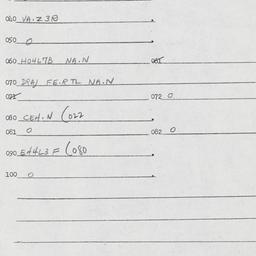 040 VA.Z3R
050 O
060 H0467B NA.N 065
070 DRAJ FE.RTL NA.N
072 O
080 CEH.N (022
081 O 082 O
090 E4463F (080
100 O